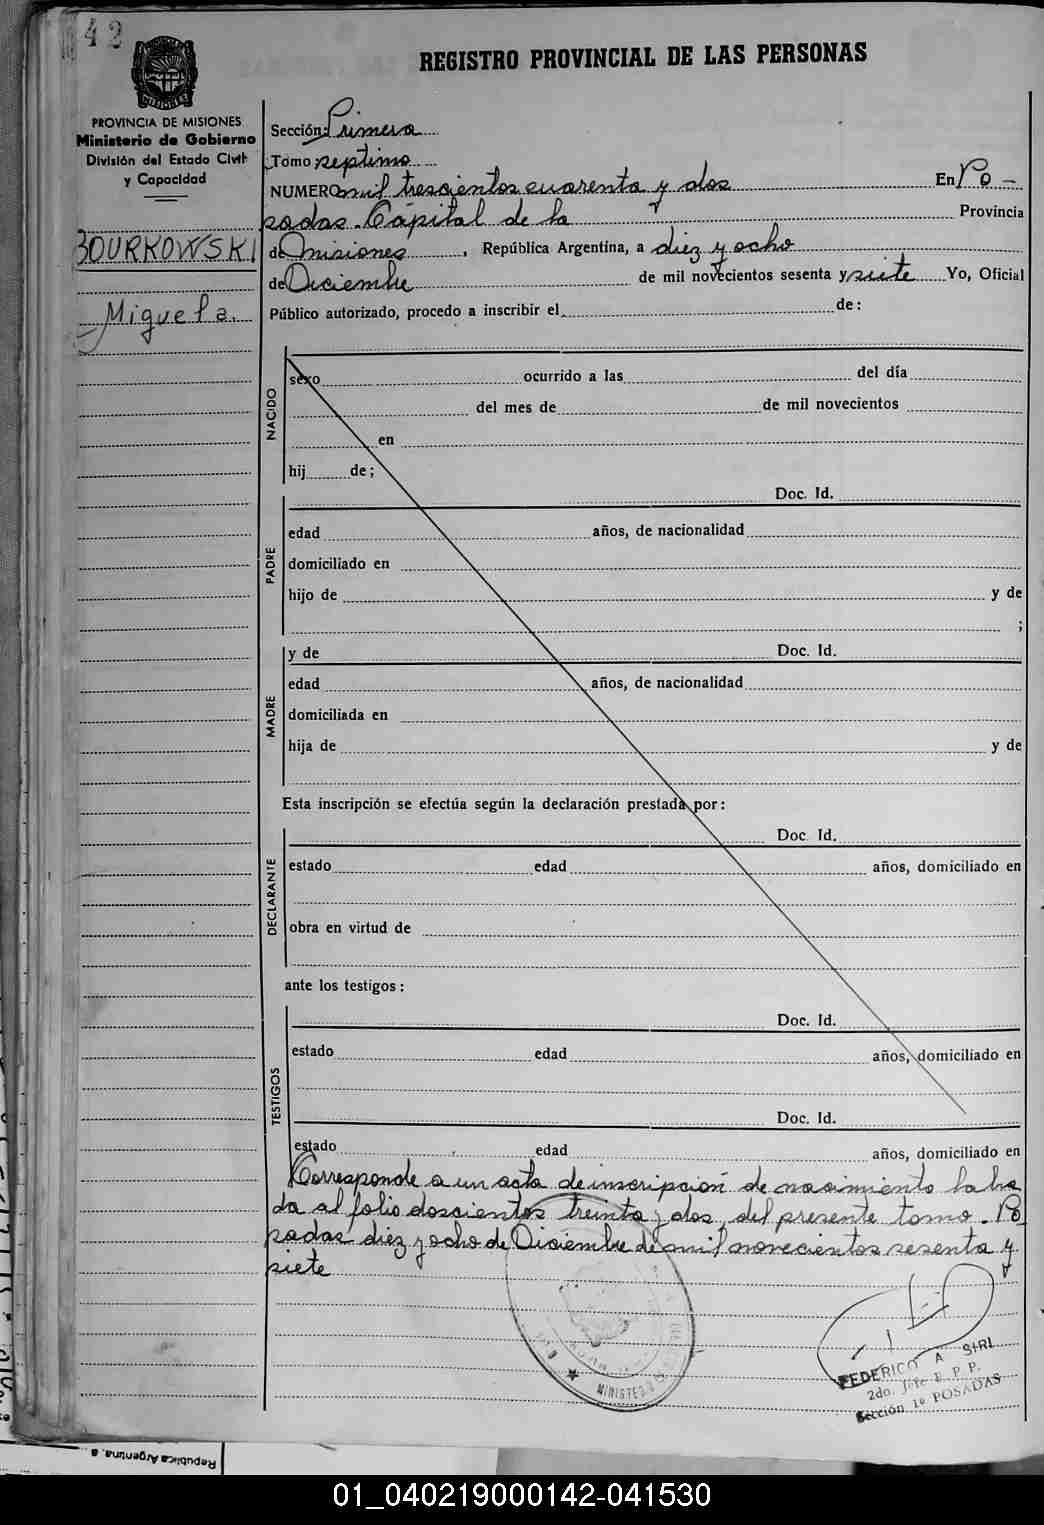 42
REGISTRO PROVINCIAL DE LAS PERSONAS
PROVINCIA DE MISIONES
Ministerio de Gobierno
División del Estado Civil
y Capacidad
BOURKOWSKI
Miguela.
Sección: Primera
Tomo septimo
NUMERO mil trescientos cuarenta y dos En Po-
sadas. Cápital de la Provincia
de Misiones, República Argentina, a diez y ocho
de Diciembre de mil novecientos sesenta y siete Yo, Oficial
Público autorizado, procedo a inscribir el de:
NACIDO
sexo ocurrido a las del día
del mes de de mil novecientos
en
hij de;
Doc. Id.
PADRE
edad años, de nacionalidad
domiciliado en
hijo de y de
;
y de Doc. Id.
MADRE
edad años, de nacionalidad
domiciliada en
hija de y de
Esta inscripción se efectúa según la declaración prestada por:
Doc. Id.
DECLARANTE
estado edad años, domiciliado en
obra en virtud de
ante los testigos:
Doc. Id.
TESTIGOS
estado edad años, domiciliado en
Doc. Id.
estado edad años, domiciliado en
Corresponde a un acta de inscripción de nacimiento labra
da al folio doscientos treinta y dos, del presente tomo. Po
sadas diez y ocho de Diciembre de mil novecientos sesenta y
siete
MINISTERIO
FEDERICO A SIRI
2do. Jefe R. P. P.
Sección 1º POSADAS
República Argentina, a
01_040219000142-041530